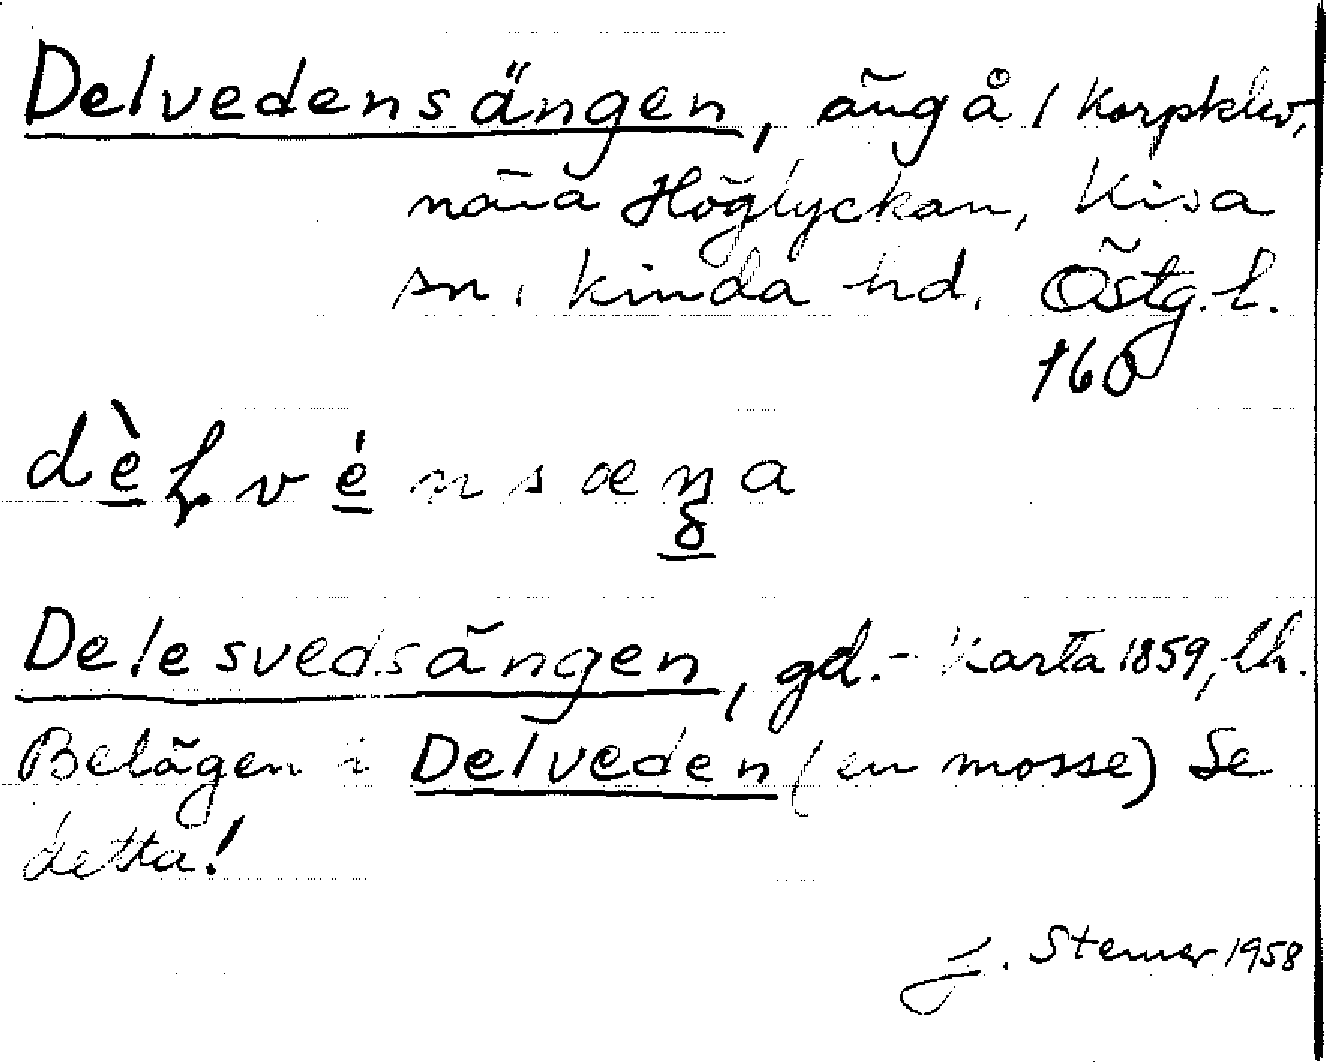 Delvedensängen, äng å 1 Korpklev,
nära Höglyckan, Kisa
sn, Kinda hd, Östg. l.
160
Delesvedsängen, gd. - Karta 1859, lh.
Belägen i Delveden (en mosse) Se
detta!
J. Sterner 1958